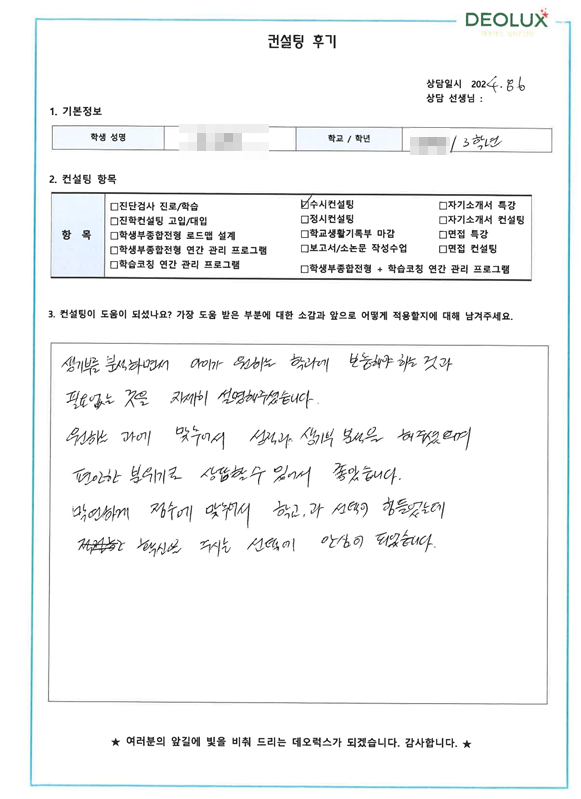 DEOLUX
컨설팅 후기
상담일시 2024.8.6
상담 선생님 :
1. 기본정보
학생 성명
학교 / 학년
/ 3학년
2. 컨설팅 항목
항 목
□진단검사 진로/학습
□진학컨설팅 고입/대입
□학생부종합전형 로드맵 설계
□학생부종합전형 연간 관리 프로그램
□학습코칭 연간 관리 프로그램
☑수시컨설팅
□정시컨설팅
□학교생활기록부 마감
□보고서/소논문 작성수업
□학생부종합전형 + 학습코칭 연간 관리 프로그램
□자기소개서 특강
□자기소개서 컨설팅
□면접 특강
□면접 컨설팅
3. 컨설팅이 도움이 되셨나요? 가장 도움 받은 부분에 대한 소감과 앞으로 어떻게 적용할지에 대해 남겨주세요.
생기부를 분석하면서 아이가 원하는 학과에 보충해야 하는 것과
필요없는 것을 자세히 설명해주셨습니다.
원하는 과에 맞추어서 성적과 생기부 분석을 해주셨으며
편안한 분위기로 상담할 수 있어서 좋았습니다.
막연하게 점수에 맞춰서 학교, 과 선택이 힘들었는데
주시는 선택에 안심이 되었습니다.
★ 여러분의 앞길에 빛을 비춰 드리는 데오럭스가 되겠습니다. 감사합니다. ★